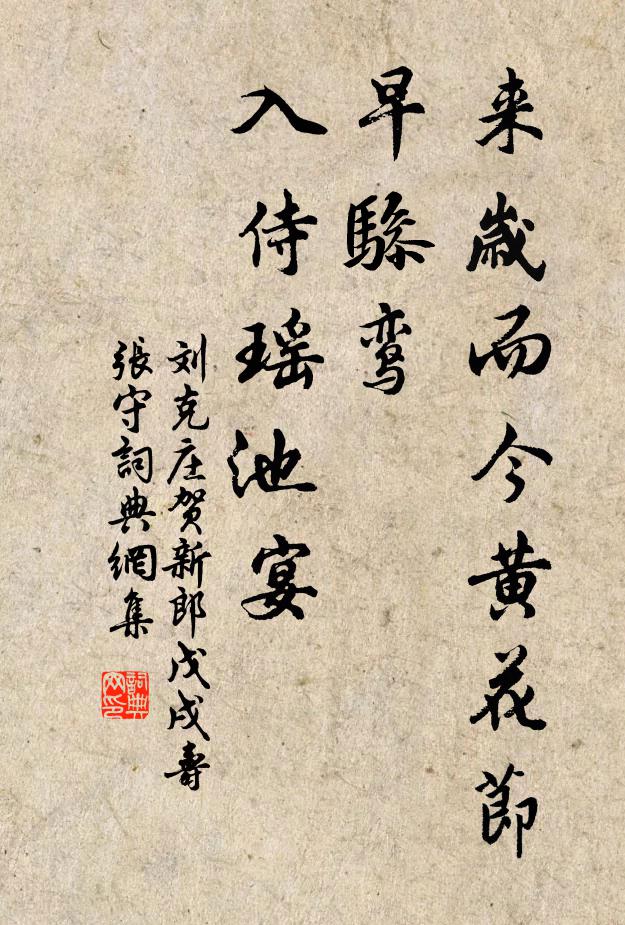 来歲而今黄花節
早驂鸾
入侍瑶池宴
刘克庄贺新郎戊戌壽
張守詞典網集
詞典网印